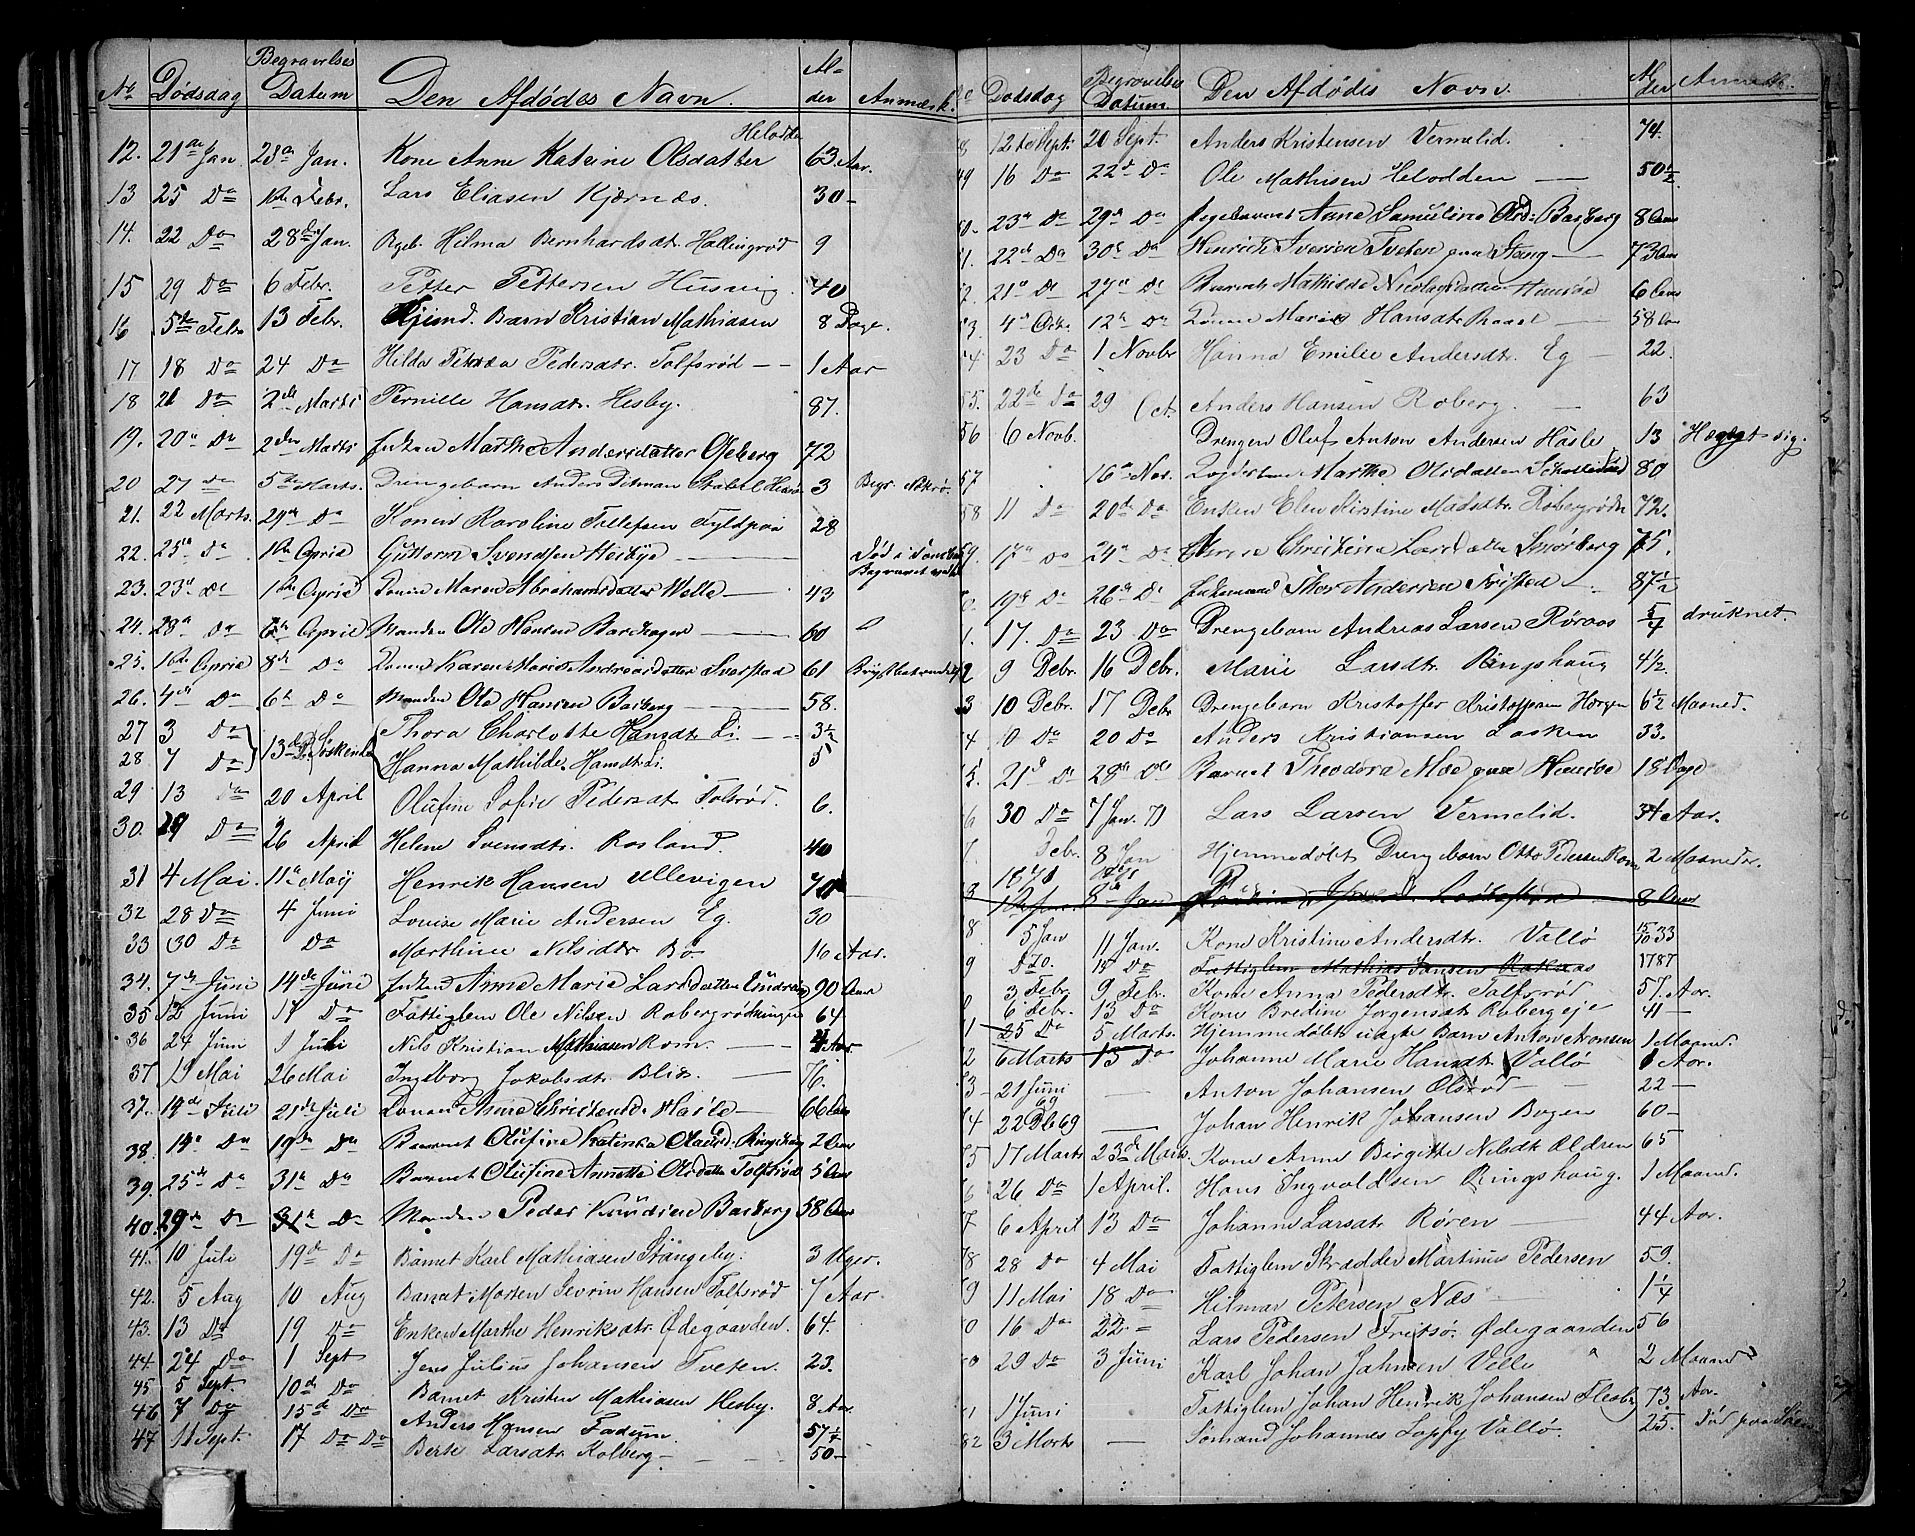 No Dødsdag Begravelses Datum Den Afdødes Navn. Al-der Anmærk.
12. 21de Jan 28de Jan. Kone Anne Katrine Olsdatter Helodden 63 Aar.
13 25 Do 1ste Febr. Lars Eliasen Kjærnæs. 30 -
14. 22 Do 28de Jan. Pgeb. Hilma Bernhardsdt. Hallingrød 9
15 29 Do 6 Febr. Petter Pettersen Husvig. 40
16 5te Febr 13 Febr. Hjemd. Barn Kristian Mathiasen 8 Dage.
17 18 Do 24 Do Hilda Petrea Pedersdtr. Tolfsrød 1 Aar
18 21 Do 2de Marts Pernille Hansdtr. Hesby. 87.
19. 20de Do 2den Marts Enken Marthe Andersdatter Oseberg 72
20 27 Do 5te Marts. Drengebarn Anders Ditman Stabel 3 Begr.
21. 22 Marts. 29de Do Konen Karoline Tellefsen Fyldpaa 28
22. 25de Do 1ste April Guttorm Svendsen Heibye. Død i Tønsberg Begravet
23. 23de Do 1ste April Konen Maren Abrahamsdatter Welle 43
24. 28de Do April Manden Ole Hansen Barkager 60
25. 1ste April 8de Do Konen Karen Marie Andreasdatter Sverstad 61
26. 4de Do 6te Do Manden Ole Hansen Basberg 58.
27 3 Do 13de Do Søskende Thora Charlotte Hansdtr Li. 3½
28 7 Do Hanna Mathilde Hansdt. Li. 5
29 13 Do 20 April Olufine Sofie Pedersdtr. Tolsrød. 6.
30. 19 Do 26 April Helene Svensdtr. Rosland. 40
31 4 Mai. 11te Maij Henrik Hansen Ullevigen
32 28 Do 4 Juni Louise Marie Andersen Eg. 30
33 30 Do Do Marthine Nilsdtr. Bø 16 Aar.
34. 7de Juni 14de Juni Enken Anne Marie Larsdatter 90 Aar
35 12 Juni 17 Do Fattiglem Ole Nilsen Robergrødningen 64.
36 24 Juni 1 Juli Nils Kristian Mathiasen Rom. Aar.
37 19 Mai 26 Mai Ingeborg Jakobsdtr. Blix. 76.
37. 14de Juli 21de Juli Konen Anne Christensd. Hasle 66 Aar
38. 14de Do 19de Do Barnet Olufine Katinka Olausd: Ringshoug 2 Aar
39. 25de Do 31te Do Barnet Olufine Annette Olsdatter Tolfsrød 5 Aar
40. 29de Do 31te Do Manden Peder Knudsen Basberg 58 Aar
41. 10 Juli 19de Do Barnet Karl Mathiasen Stangeby. 3 Uger.
42. 5 Aug 10 Aug Barnet Morten Severin Hansen Tolfsrød 7 Aar
43. 13 Do 19 Do Enken Marthe Henriksdtr. Ødegaarden. 64.
44. 24 Do 1 Sept Jens Julius Johansen Tveten. 23.
45 5 Sept. 10de Do Barnet Kristen Mathiasen Hesby. 8 Aar
46 7 Do 15de Do Anders Hansen Fadum. 57½
47 11 Sept. 17 Do Do Berte Larsdtr. Kolberg 50 -
Dødsdag Begravelses Datum Den Afdødes Navn. Al der Anmærk.
8 12te Sept. 20 Sept. Anders Kristensen Vermelid. 74.
49 16 Do 22d Do Ole Mathisen Helodden 50½
0. 23de Do 29de Do Pigebarnet Anne Samuline Olsd: Basberg 8 Aar
1. 22de Do 30te Do Henrich Iversen Tveten paa Stang 73 Aar
2. 21de Do 27de Do Barnet Mathilde Nicolaisdatter Husøe 6 Aar
3. 4de Octr. 12te Do Konen Marie Hansdtr Raael 58 Aar
4 23 Do 1 Novbr Hanna Emilie Andersdtr. Eg 22.
55. 22de Do 29 Oct. Anders Hansen Roberg. 63
56 6 Novb. Drengen Oluf Anton Andersen Hasle 13 Hængt sig.
57 16de Nov. Marthe Olsdatter 80
58 11 Do 20de Do Enken Elen Kirstine Madsdtr. Robergrødn 72.
59. 17de Do 24de Do Christine Larsdatter Smørberg 75.
0. 19de Do 26de Do Enkemand Thor Andersen Fristad 87½
1. 17. Do 23 Do Drengebarn Andreas Larsen Røraas 5/4 druknet.
2 9 Debr. 16 Debr. Marie Larsdtr. Ringshaug 4½
3 10 Debr. 17 Debr Drengebarn Kristoffer Kristoffersen Horgen 6½ Maaned.
4 10 Do 20 Do Anders Kristiansen Løsken 33.
5. 21d Do 28de Do Barnet Theodora Moe paa Husøe 18 Dage
6 30 Do 7 Jan. 71 Lars Larsen Vermelid. 34 Aar.
7. Debr. 8 Jan Hjemmedøbt Drengebarn Otto Pedersen Rom 2 Maaneder.
1871
8 8 Aar
8. 5 Jan 11 Jan. Kone Kristine Andersdtr. Vallø 15/10 33
9 Do 20. 14 Do Fattiglem Mathias Jansen 1787
3 Febr. 9 Febr. Kone Anna Pedersdtr. Tolfsrød 57. Aar.
0 6 Febr. 13 Do Kone Bredine Jørgensdt Robergeje 41 -
1 25 Do 5 Marts. Hjemmedøbt uægte Barn Anton Aronsen 1 Maaned
2 6 Marts 13 Do Johanne Marie Hansdtr. Vallø 1 Aar.
3 21 Juni 69 Anton Johansen Olsrød 22 -
4 22 Db 69 Johan Henrik Johansen Bogen 60 -
5 17 Marts 23d Marts. Kone Anne Birgitte Nilsdt Oldren 65
6 26 Do 1 April. Hans Ingvaldsen Ringshaug. 1 Maaned.
7 6 April 13 Do Johanne Larsdtr Røren 44 Aar.
8 28 Do 4 Mai Fattiglem Skrædder Martinus Pedersen 59.
9 11 Mai 18 Do Hilmar Petersen Næs 1¼
0 16 Do 22 - Lars Pedersen Fritsø. Ødegaarden 56
0 29 Do 3 Juni Karl Johan Jahnsen Velle 2 Maaneder
1 1 Juni Fattiglem Johan Henrik Johansen Flesby 73. Aar.
82 3 Marts Sømand Johannes Vallø. 25. Død paa Søen